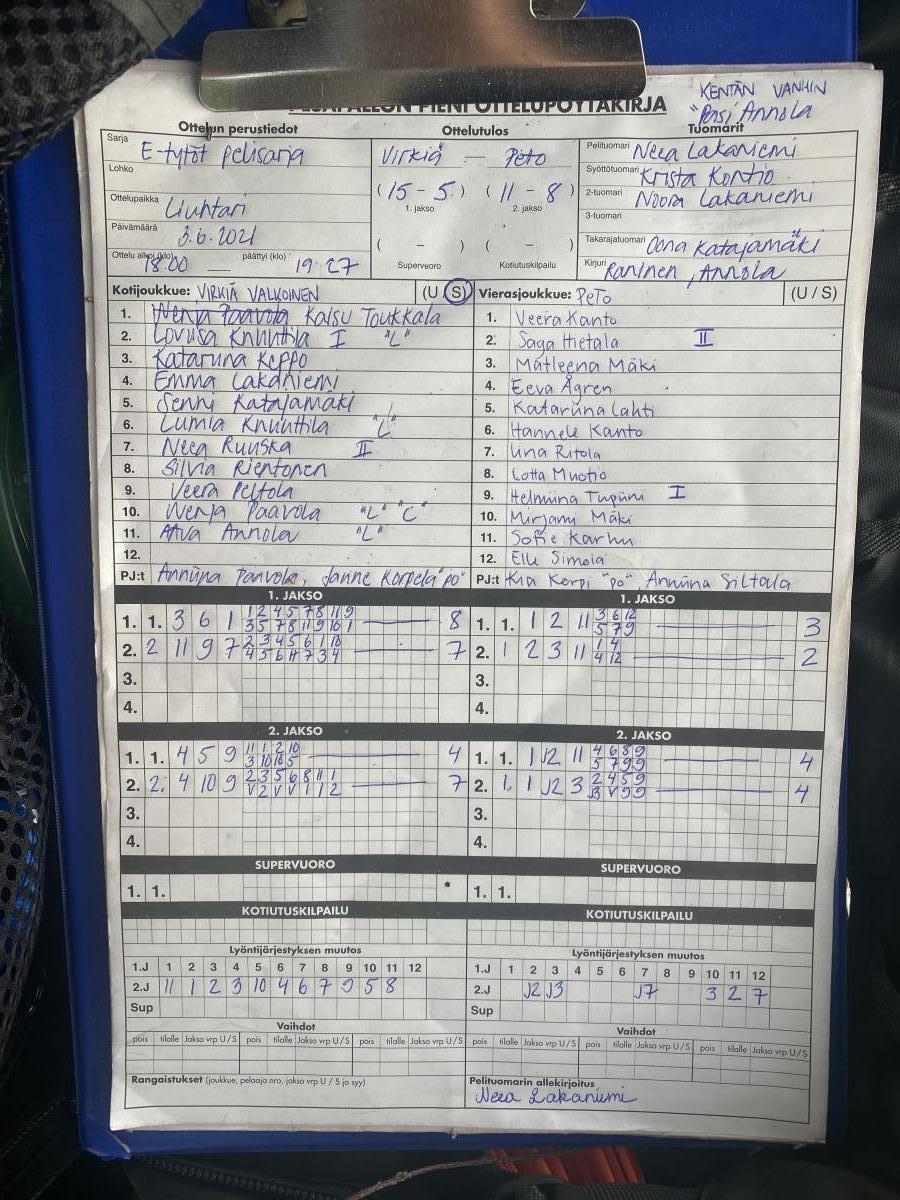 PESÄPALLON PIENI OTTELUPÖYTÄKIRJA
KENTÄN VANHIN
"Pasi Annola
Ottelun perustiedot
Ottelutulos
Tuomarit
Sarja E-tytöt pelisarja
Lohko
Ottelupaikka Liuhtari
Päivämäärä 3.6.2021
Ottelu alkoi (klo) 18.00 — päättyi (klo) 19.27
Virkiä — Peto
(15 - 5) (11 - 8)
1. jakso 2. jakso
( - ) ( - )
Supervuoro Kotiutuskilpailu
Pelituomari Neea Lakaniemi
Syöttötuomari Krista Kontio
2-tuomari Noora Lakaniemi
3-tuomari
Takarajatuomari Oona Katajamäki
Kirjuri Raninen, Annola
Kotijoukkue: VIRKIÄ VALKOINEN (U S)
1. Kaisu Toukkala
2. Loviisa Knuuttila I "L"
3. Katariina Keppo
4. Emma Lakaniemi
5. Senni Katajamäki
6. Lumia Knuuttila "L"
7. Neea Ruuska II
8. Silvia Rientonen
9. Veera Peltola
10. Wenja Paavola "L" "C"
11. Annola "L"
12.
PJ:t Anniina Paavola, Janne Korpela "po"
Vierasjoukkue: PeTo (U / S)
1. Veera Kanto
2. Saga Hietala II
3. Matleena Mäki
4. Eeva Ågren
5. Katariina Lahti
6. Hannele Kanto
7. Iina Ritola
8. Lotta Muotio
9. Helmiina Tupiini I
10. Mirjami Mäki
11. Sofie Karhu
12. Elle Simola
PJ:t Kia Korpi "po" Anniina Siltala
1. JAKSO
1. 1. 3 6 1 8
2. 2 11 9 7 7
3.
4.
1. JAKSO
1. 1. 1 2 11 3
2. 1 2 3 11 2
3.
4.
2. JAKSO
1. 1. 4 5 9 4
2. 2. 4 10 9 7
3.
4.
2. JAKSO
1. 1. 1 J2 11 4
2. 1. 1 J2 3 4
3.
4.
SUPERVUORO
1. 1.
SUPERVUORO
1. 1.
KOTIUTUSKILPAILU
KOTIUTUSKILPAILU
Lyöntijärjestyksen muutos
1.J 1 2 3 4 5 6 7 8 9 10 11 12
2.J 11 1 2 3 10 4 6 7 9 5 8
Sup
Lyöntijärjestyksen muutos
1.J 1 2 3 4 5 6 7 8 9 10 11 12
2.J J2 J3 J7 3 2 7
Sup
Vaihdot
pois tilalle Jakso vrp U/S pois tilalle Jakso vrp U/S pois tilalle Jakso vrp U/S
Vaihdot
pois tilalle Jakso vrp U/S pois tilalle Jakso vrp U/S pois tilalle Jakso vrp U/S
Rangaistukset (joukkue, pelaaja nro, jakso vrp U / S ja syy)
Pelituomarin allekirjoitus
Neea Lakaniemi